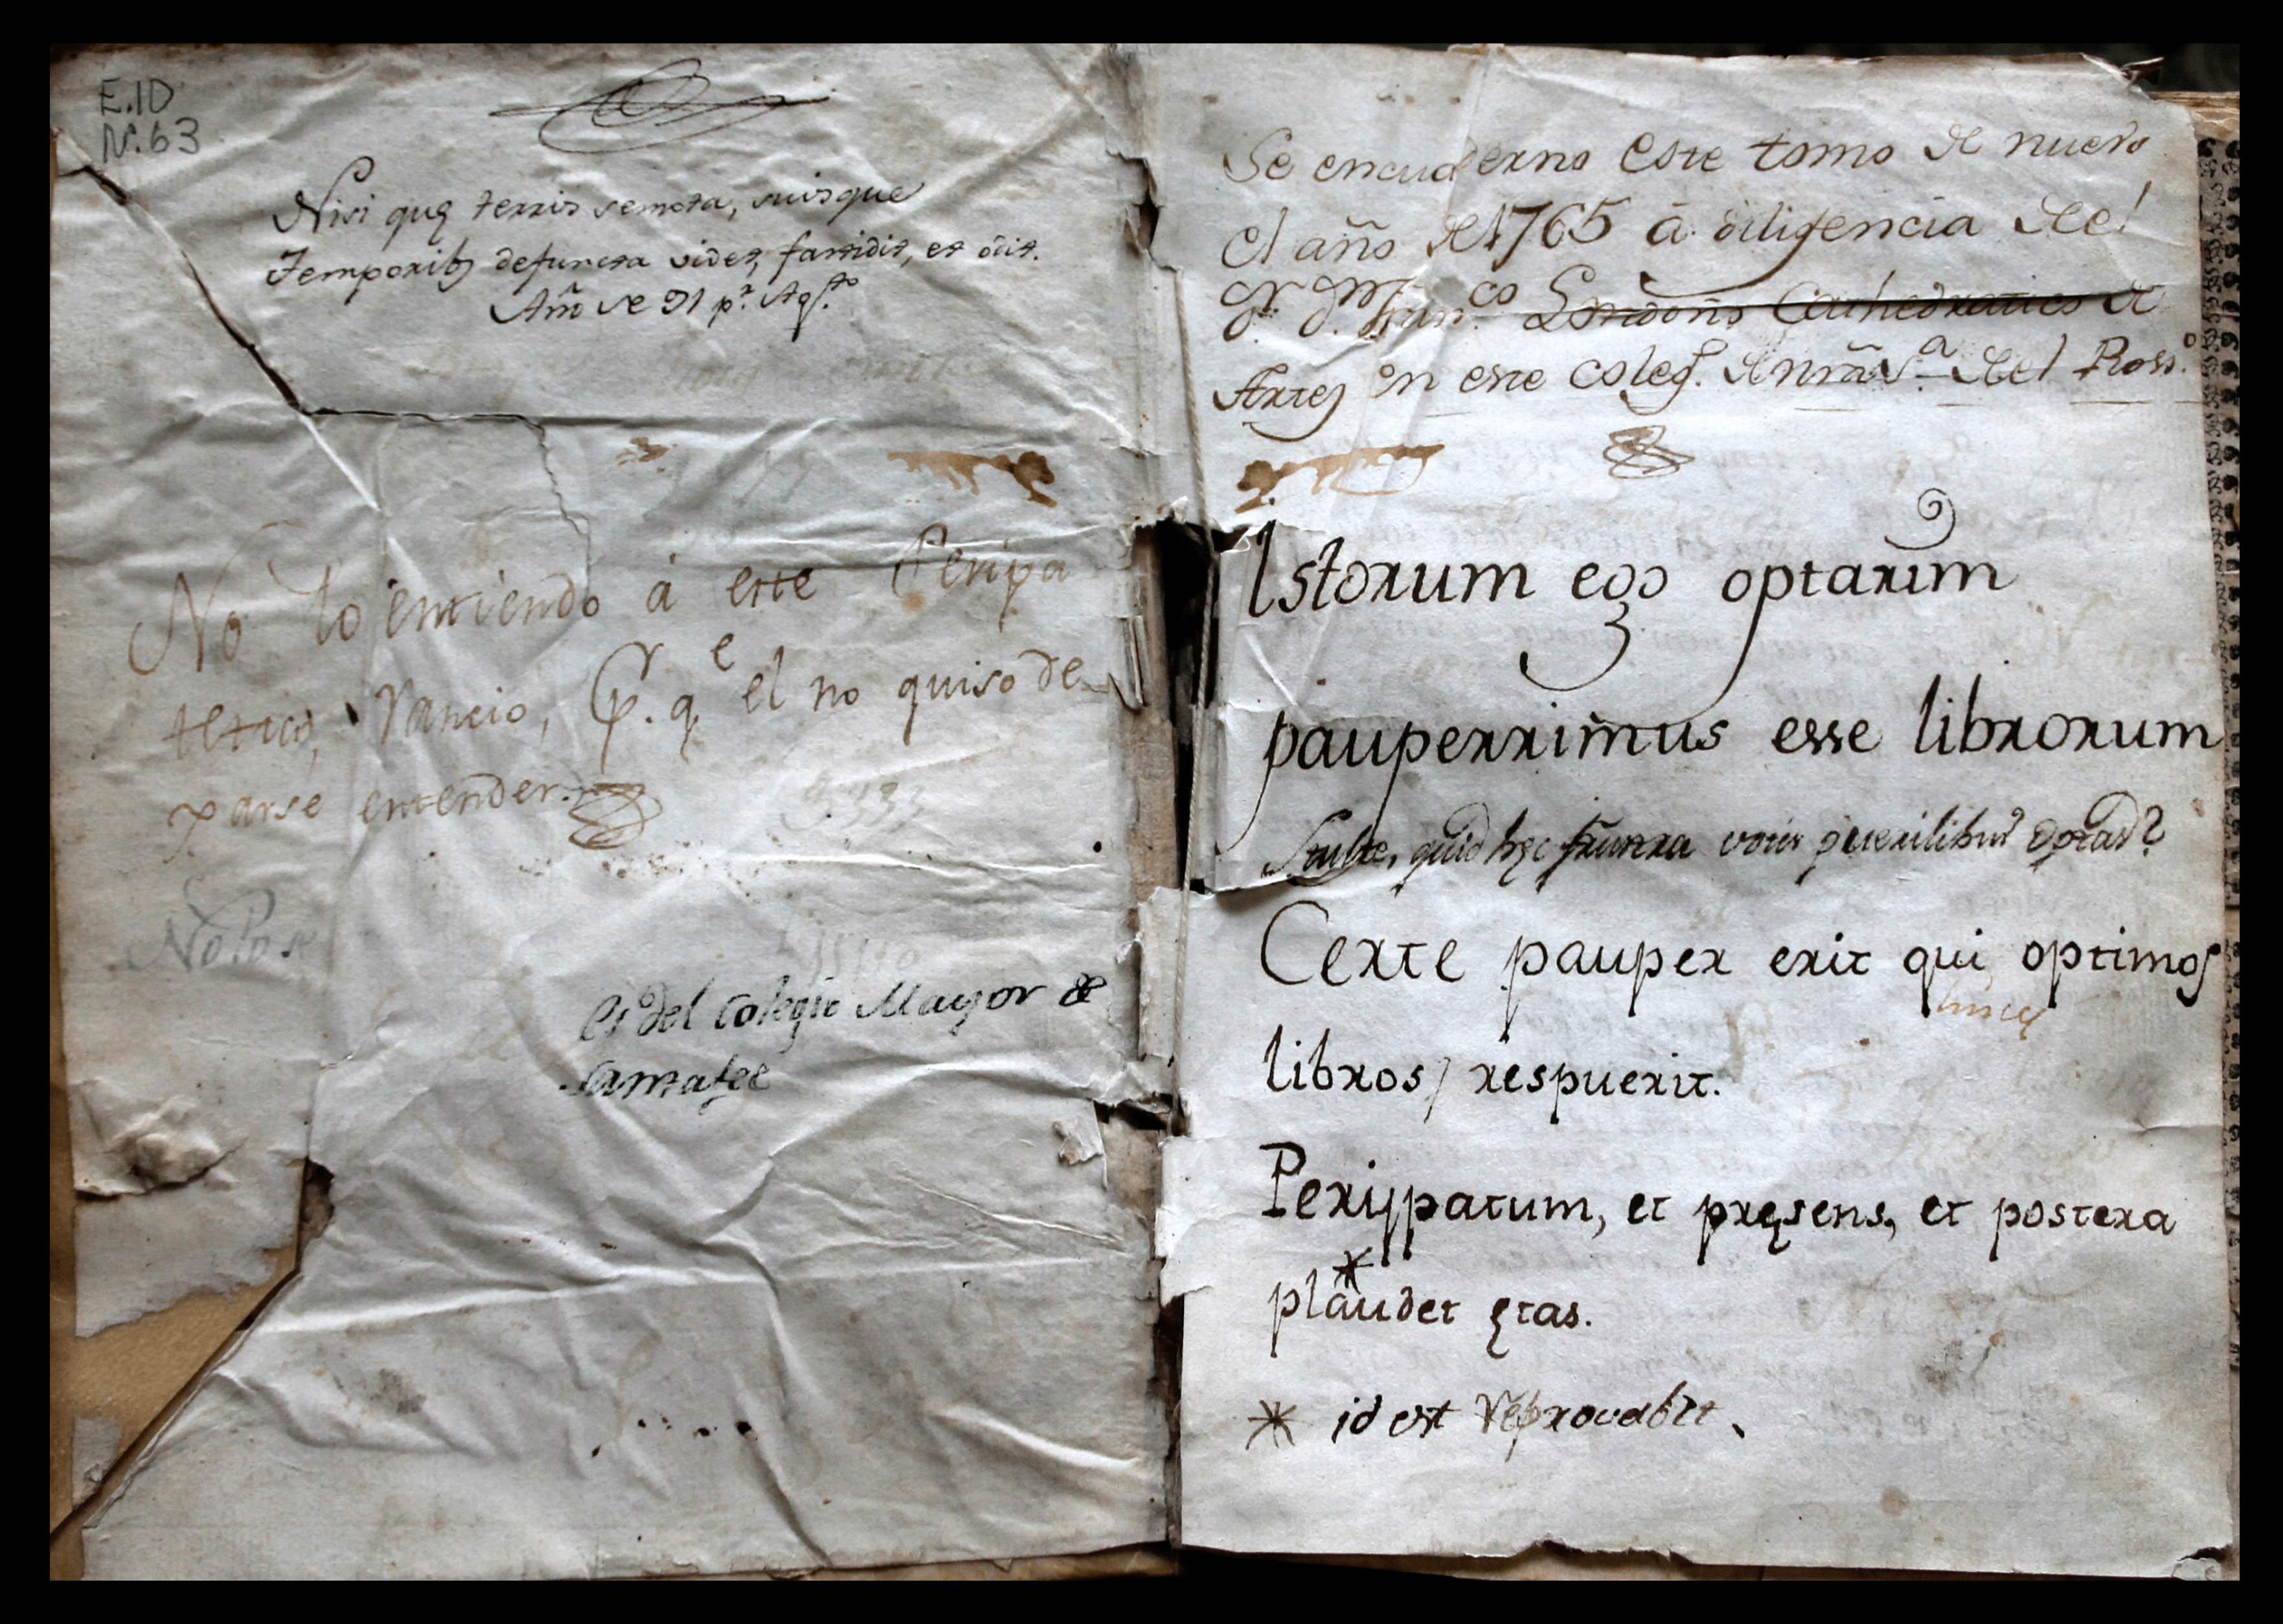 E.ID
N.63
Nisi quę terris semota, suisque
Temporibȝ defuncta videt, fastidit, et odit.
Año de 91 pr. Agto.
No lo entiendo á este Peripa
tetico, rancio, pr. qe el no quiso de
parse entender.
No lo se
es del colegio Mayor de
Santafee
Se encuaderno este tomo de nuevo
el año de 1765 â diligencia del
Dr. Dn. Franco Londoño Cathedratico de
Artes en este coleg. de nrã Sª. del Rosso.
Istorum ego optarim
pauperrimus esse librorum
Stulte, quid hęc frustra votis puerilibus optas?
Certe pauper erit qui optimos
huncq
libros / respuerit.
Perijpatum, et pręsens, et postera
plaudet ętas.
* id est reprovabit.